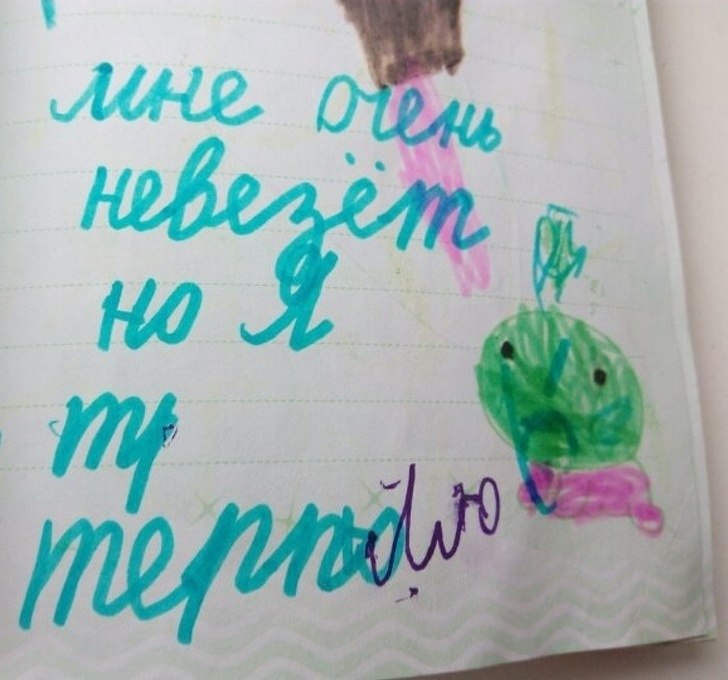 мне очень
невезёт
но Я
тр
терплю